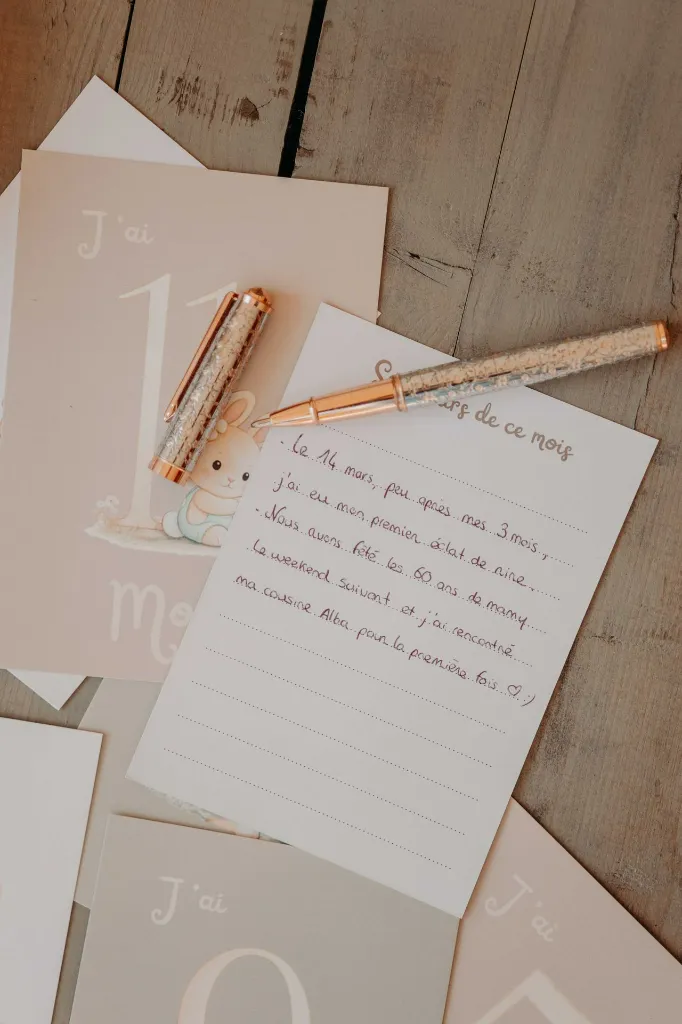 J'ai
11
Mo
de ce mois
- Le 14 mars, peu après mes 3 mois,
j'ai eu mon premier éclat de rire.
- Nous avons fêté les 60 ans de mamy
le weekend suivant et j'ai rencontré
ma cousine Alba pour la première fois ♡ :)
J'ai
J'ai